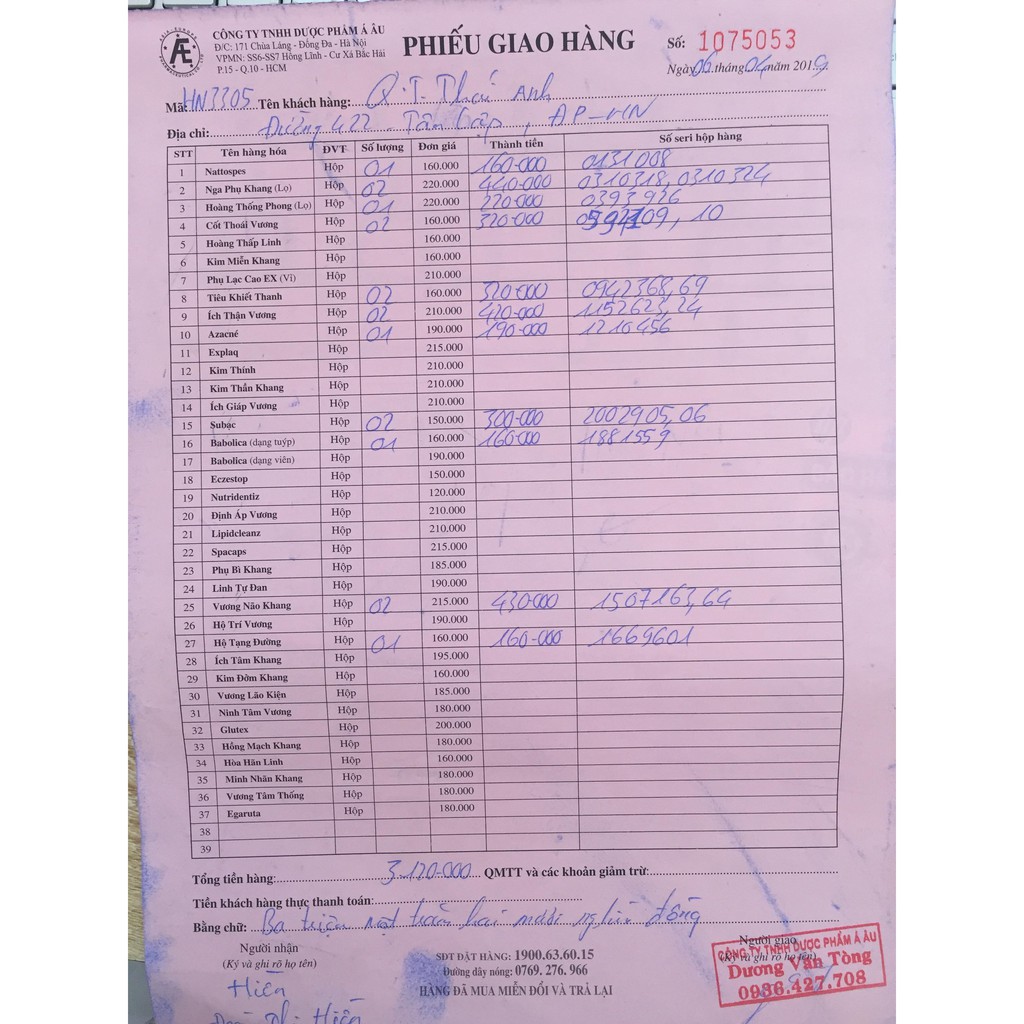 CÔNG TY TNHH DƯỢC PHẨM Á ÂU
Đ/C: 171 Chùa Láng - Đống Đa - Hà Nội
VPMN: SS6-SS7 Hồng Lĩnh - Cư Xá Bắc Hải
P.15 - Q.10 - HCM
ÆE
PHIẾU GIAO HÀNG
Số: 1075053
Ngày 06 tháng 04 năm 2019
Mã: HN3305 Tên khách hàng: Q.T. Thái Anh
Địa chỉ: Đường 422 - Tân Lập, ĐP-HN
STT Tên hàng hóa ĐVT Số lượng Đơn giá Thành tiền Số seri hộp hàng
1 Nattospes Hộp 01 160.000 160.000 0131008
2 Nga Phụ Khang (Lọ) Hộp 02 220.000 440.000 0310318, 0310324
3 Hoàng Thống Phong (Lọ) Hộp 01 220.000 220.000 0393926
4 Cốt Thoái Vương Hộp 02 160.000 320.000 109, 10
5 Hoàng Thấp Linh Hộp 160.000
6 Kim Miễn Khang Hộp 160.000
7 Phụ Lạc Cao EX (Vỉ) Hộp 210.000
8 Tiêu Khiết Thanh Hộp 02 160.000 320.000 0942368, 69
9 Ích Thận Vương Hộp 02 210.000 420.000 1152623, 24
10 Azacné Hộp 01 190.000 190.000 1210456
11 Explaq Hộp 215.000
12 Kim Thính Hộp 210.000
13 Kim Thần Khang Hộp 210.000
14 Ích Giáp Vương Hộp 210.000
15 Subạc Hộp 02 150.000 300.000 2002905, 06
16 Babolica (dạng tuýp) Hộp 01 160.000 160.000 1881559
17 Babolica (dạng viên) Hộp 190.000
18 Eczestop Hộp 150.000
19 Nutridentiz Hộp 120.000
20 Định Áp Vương Hộp 210.000
21 Lipidcleanz Hộp 210.000
22 Spacaps Hộp 215.000
23 Phụ Bì Khang Hộp 185.000
24 Linh Tự Đan Hộp 190.000
25 Vương Não Khang Hộp 02 215.000 430.000 1507163, 64
26 Hộ Trí Vương Hộp 190.000
27 Hộ Tạng Đường Hộp 01 160.000 160.000 1669601
28 Ích Tâm Khang Hộp 195.000
29 Kim Đởm Khang Hộp 160.000
30 Vương Lão Kiện Hộp 185.000
31 Ninh Tâm Vương Hộp 180.000
32 Glutex Hộp 200.000
33 Hồng Mạch Khang Hộp 180.000
34 Hòa Hãn Linh Hộp 160.000
35 Minh Nhãn Khang Hộp 180.000
36 Vương Tâm Thống Hộp 180.000
37 Egaruta Hộp 180.000
38
39
Tổng tiền hàng: 3.120.000 QMTT và các khoản giảm trừ:
Tiền khách hàng thực thanh toán:
Bằng chữ: Ba triệu một trăm hai mươi nghìn đồng
Người nhận
(Ký và ghi rõ họ tên)
Hiên
Hiên
SĐT ĐẶT HÀNG: 1900.63.60.15
Đường dây nóng: 0769. 276. 966
HÀNG ĐÃ MUA MIỄN ĐỔI VÀ TRẢ LẠI
Người giao
(Ký và ghi rõ họ tên)
CÔNG TY TNHH DƯỢC PHẨM Á ÂU
Dương Văn Tòng
0936.427.708